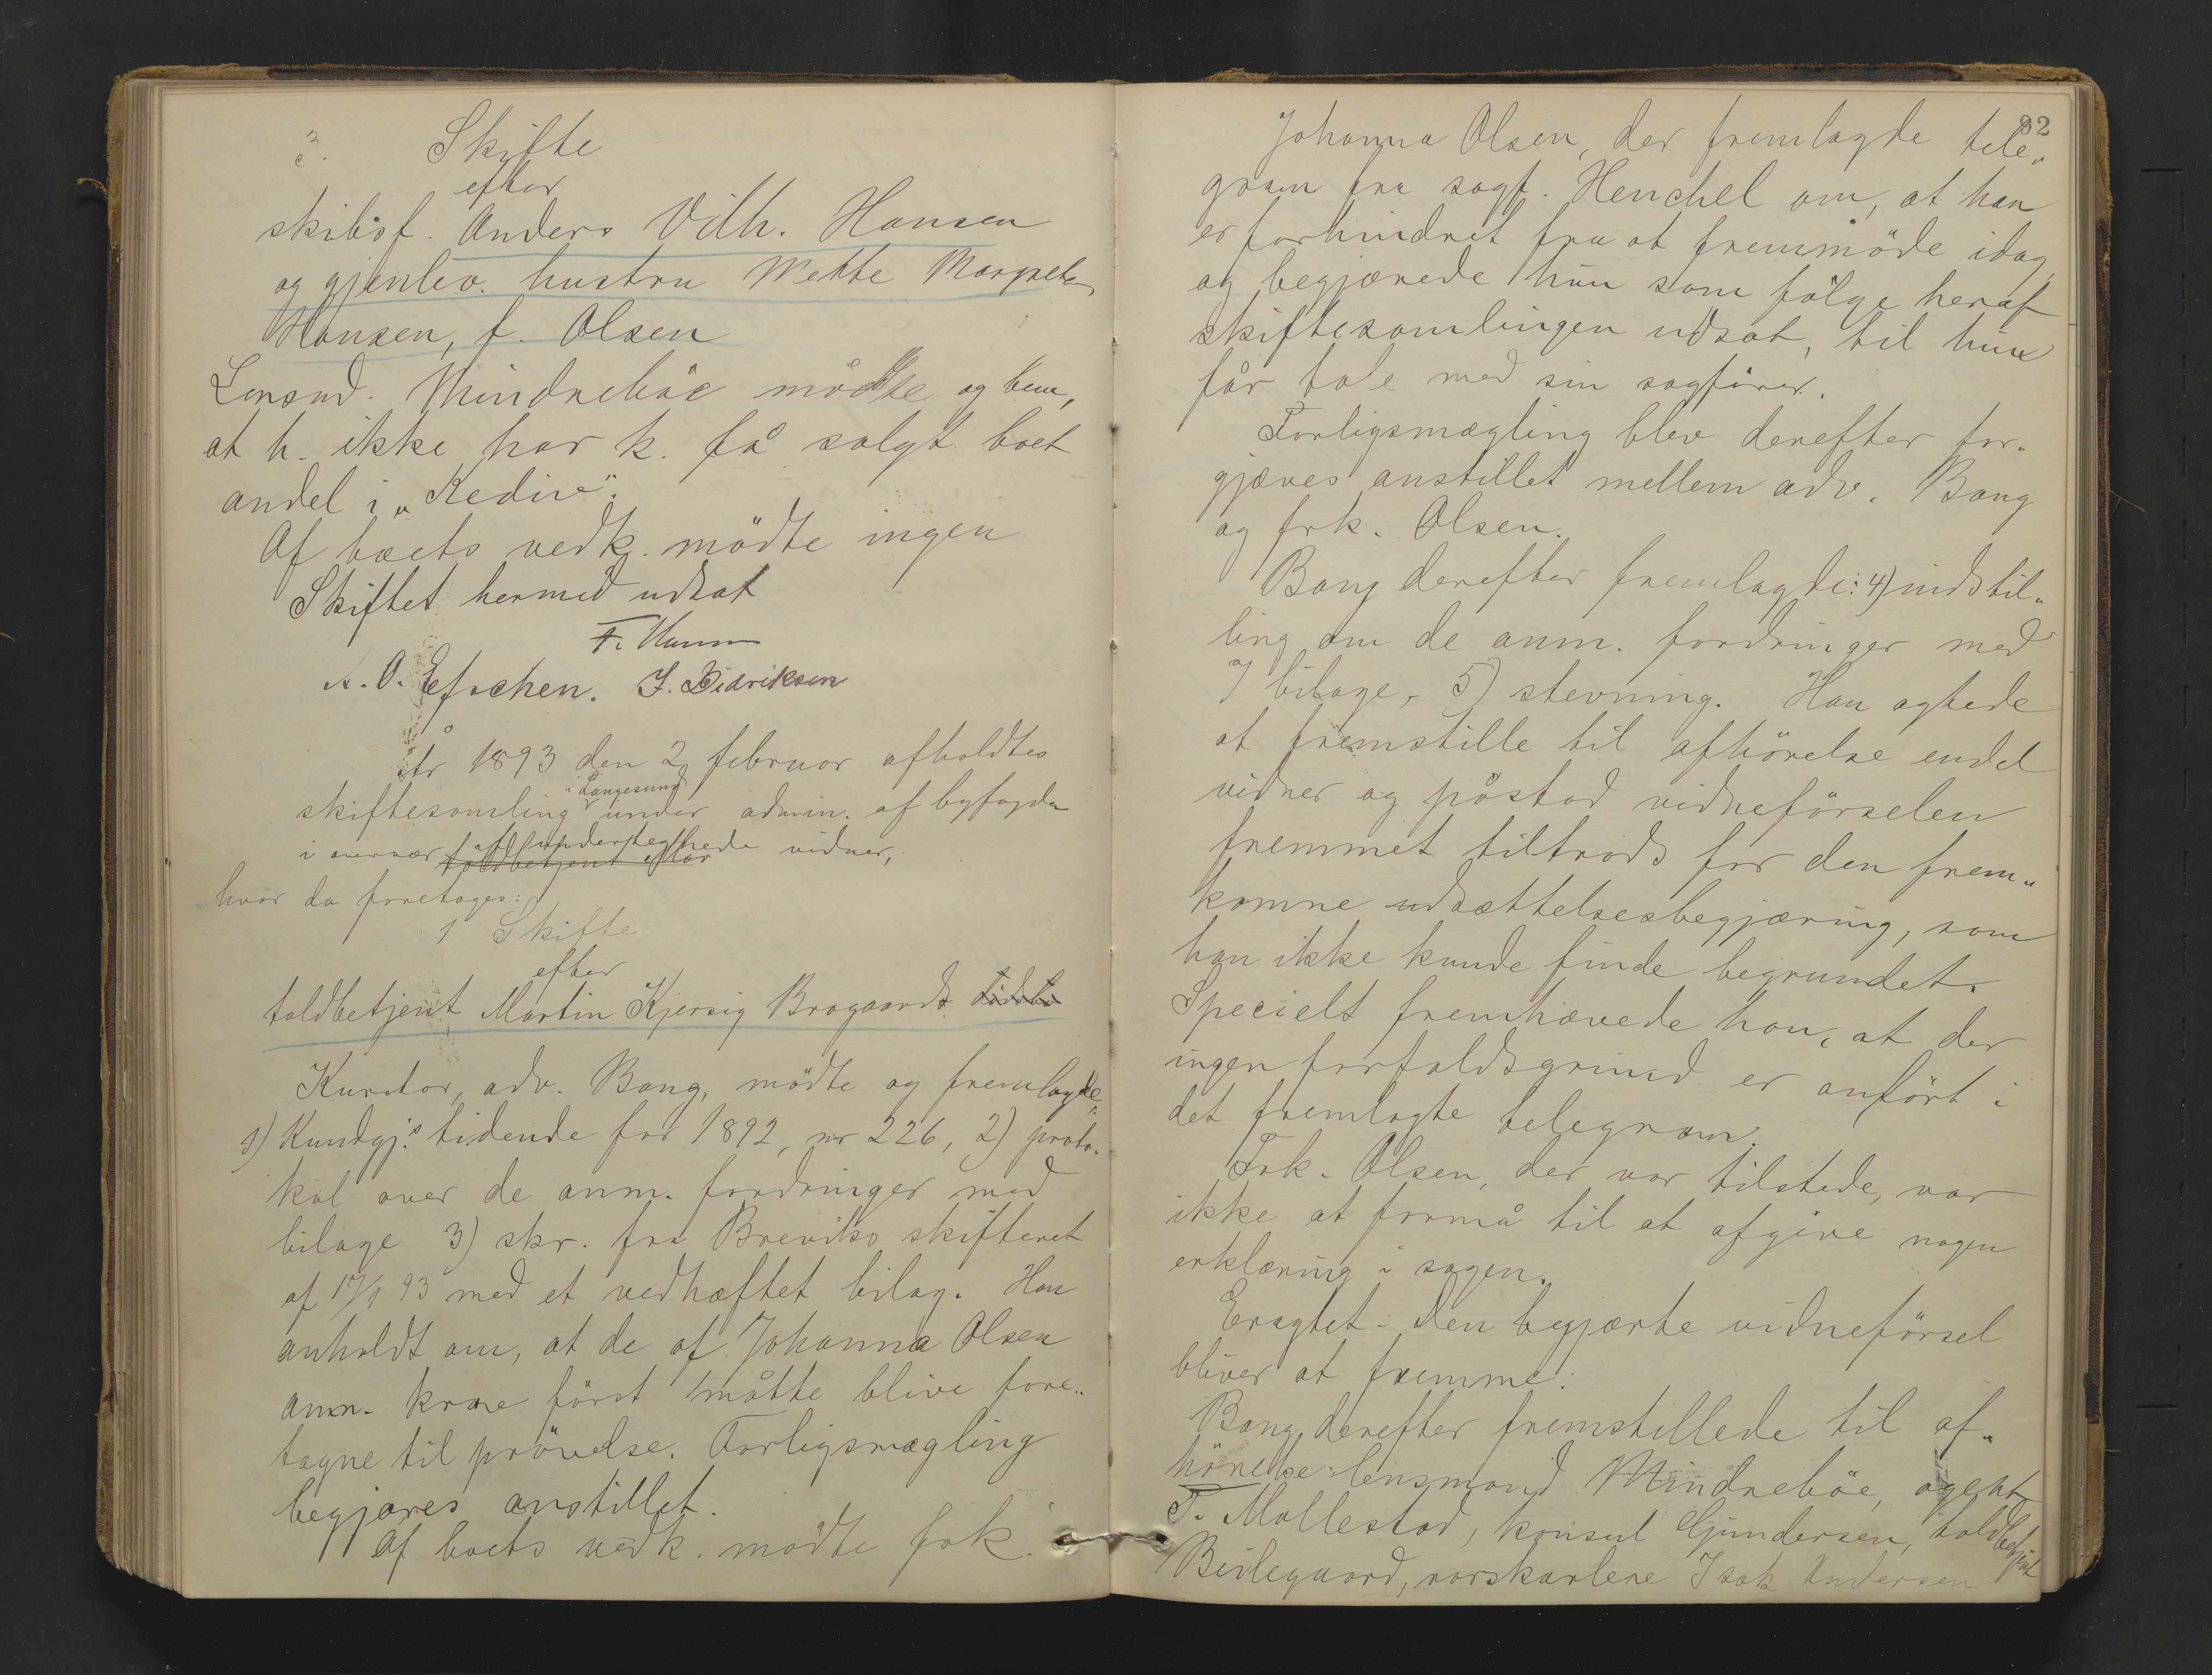 3. Skifte
efter
skibsf. Anders Vilh. Hansen
og gjenlev. hustru Mette Margrete
Hansen, f. Olsen
Lensmd. Mindrebøe mødte og bem,
at h. ikke har k. få solgt boet
andel i „Kedive".
Af boets vedk. mödte ingen
Skiftet hermed udsat
J. Didriksen
År 1893 den 2 februar afholdtes
skiftesamling i Langesund under admin. af byfogden
i overvær af undertegnede vidner,
hvor da foretoges:
1 Skifte
efter
toldbetjent Martin Kjersig Bragaards
Kurator, adv. Bang, mödte og fremlagde:
1) Kundgj.s tidende for 1892, nr 226, 2) proto-
kol over de anm. fordringer med
bilage 3) skr. fra Breviks skifteret
af 17/1 93 med et vedhæftet bilag. Han
anholdt om, at de af Johanna Olsen
anm. krav först måtte blive fore„
tagne til prövelse. Forligsmægling
begjæres anstillet.
Af boets vedk. mödte frk.
82
Johanna Olsen, der fremlagde tele„
gram fra sagf. Henchel om, at han
er forhindret fra at fremmöde idag,
og begjærede hun som fölge heraf
skiftesamlingen udsat, til hun
får tale med sin sagförer.
Forligsmægling blev derefter for-
gjæves anstillet mellem adv. Bang
og frk. Olsen.
Bang derefter fremlagde: 4) indstil„
ling om de anm. fordringer med
7 bilage, 5) stevning. Han agtede
at fremstille til afhörelse endel
vidner og påstod vidneförselen
fremmet tiltrods for den frem„
komne udsættelsesbegjæring, som
han ikke kunde finde begrundet.
Specielt fremhævede han, at der
ingen forfaldsgrund er anfört i
det fremlagte telegram.
Frk. Olsen, der var tilstede, var
ikke at formå til at afgive nogen
erklæring i sagen.
Eragtet: Den begjærte vidneförsel
bliver at fremme.
Bang derefter fremstillede til af„
hörelse: lensmand Mindreböe, agent
T. Mollestad, konsul Gundersen, toldbetjent
Beilegaard, norskarlene Isak Andersen